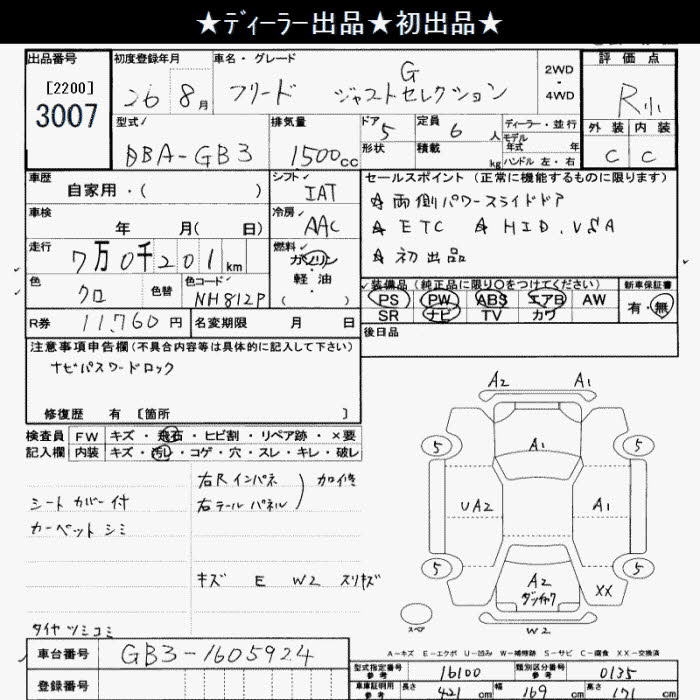 ★ディーラー出品★初出品★
出品番号
[2200]
3007
初度登録年月
26 8月
車名・グレード
フリード G ジャストセレクション
2WD
・
4WD
評価点
R小
外装 内装
C C
型式
DBA-GB3
排気量
1500cc
ドア 5
形状
定員 6 人
積載 kg
ディーラー・並行
モデル
年式 年
ハンドル 左・右
車歴
自家用・( )
シフト
IAT
セールスポイント (正常に機能するものに限ります)
☆両側パワースライドドア
☆ETC ☆HID.VSA
☆初出品
車検
年 月( 日)
冷房
AAC
走行
7万0千201km
燃料
ガソリン
・
軽油
・
( )
色
クロ
色替
色コード
NH812P
装備品 (純正品に限り○をつけてください)
PS PW ABS エアB AW
SR ナビ TV カワ
新車保証書
有・無
R券 11,760円
名変期限 月 日
後日品
注意事項申告欄 (不具合内容等は具体的に記入して下さい)
ナビパスワードロック
修復歴 有 [箇所 ]
検査員
記入欄
FW キズ・飛石・ヒビ割・リペア跡・×要
内装 キズ・汚レ・コゲ・穴・スレ・キレ・破レ
シートカバー付
カーペットシミ
右Rインパネ
右テールパネル
キズ E W2 スリキズ
タイヤツミコミ
A2 A1
5 A1 5
UA2 A1
5 A2 5
XX
スペア
W2
A-キズ E-エクボ U-凹み W-補修跡 S-サビ C-腐食 XX-交換済
車台番号 GB3-1605924
登録番号
型式指定番号
参考
16100
類別区分番号
参考
0135
車庫証明用
参考
長さ 421 cm 幅 169 cm 高さ 171 cm